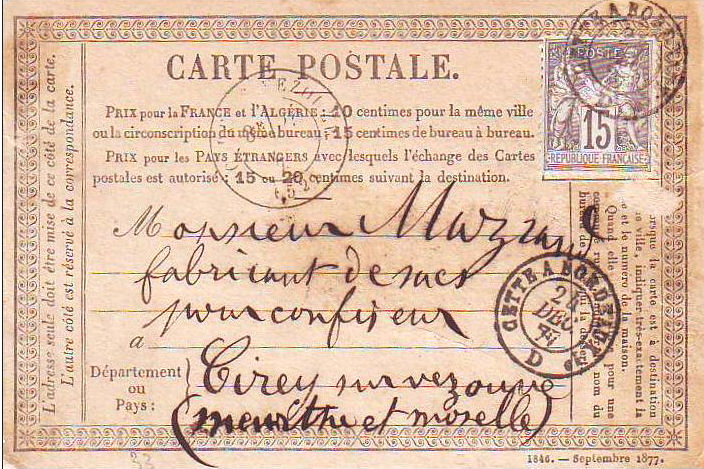 CARTE POSTALE.
PRIX pour la FRANCE et l'ALGÉRIE : 10 centimes pour la même ville
ou la circonscription du même bureau ; 15 centimes de bureau à bureau.
PRIX pour les PAYS ÉTRANGERS avec lesquels l'échange des Cartes
postales est autorisé : 15 ou 20 centimes suivant la destination.
POSTE
15
REPUBLIQUE FRANÇAISE
CETTE A BORDEAUX
Monsieur
fabricant de sacs
pour confiseur
à
Département
ou
Pays :
Cirey sur vezouze
(meurthe et moselle)
CETTE A BORDEAUX
24
DEC
77
D
L'adresse seule doit être mise de ce côté de la carte.
L'autre côté est réservé à la correspondance.
lorsque la carte est à destination
ville, indiquer très-exactement la
et le numéro de la maison.
Quand elle pour une
nom du
33
1846. — Septembre 1877.